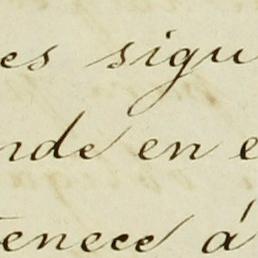 es sigu
nde en e
tenece á